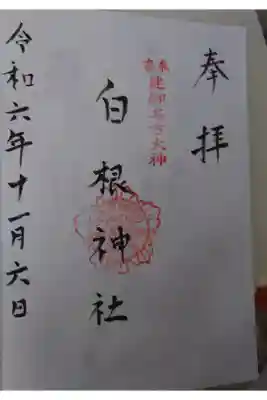 奉拝
建御名方大神
白根神社
令和六年十一月六日